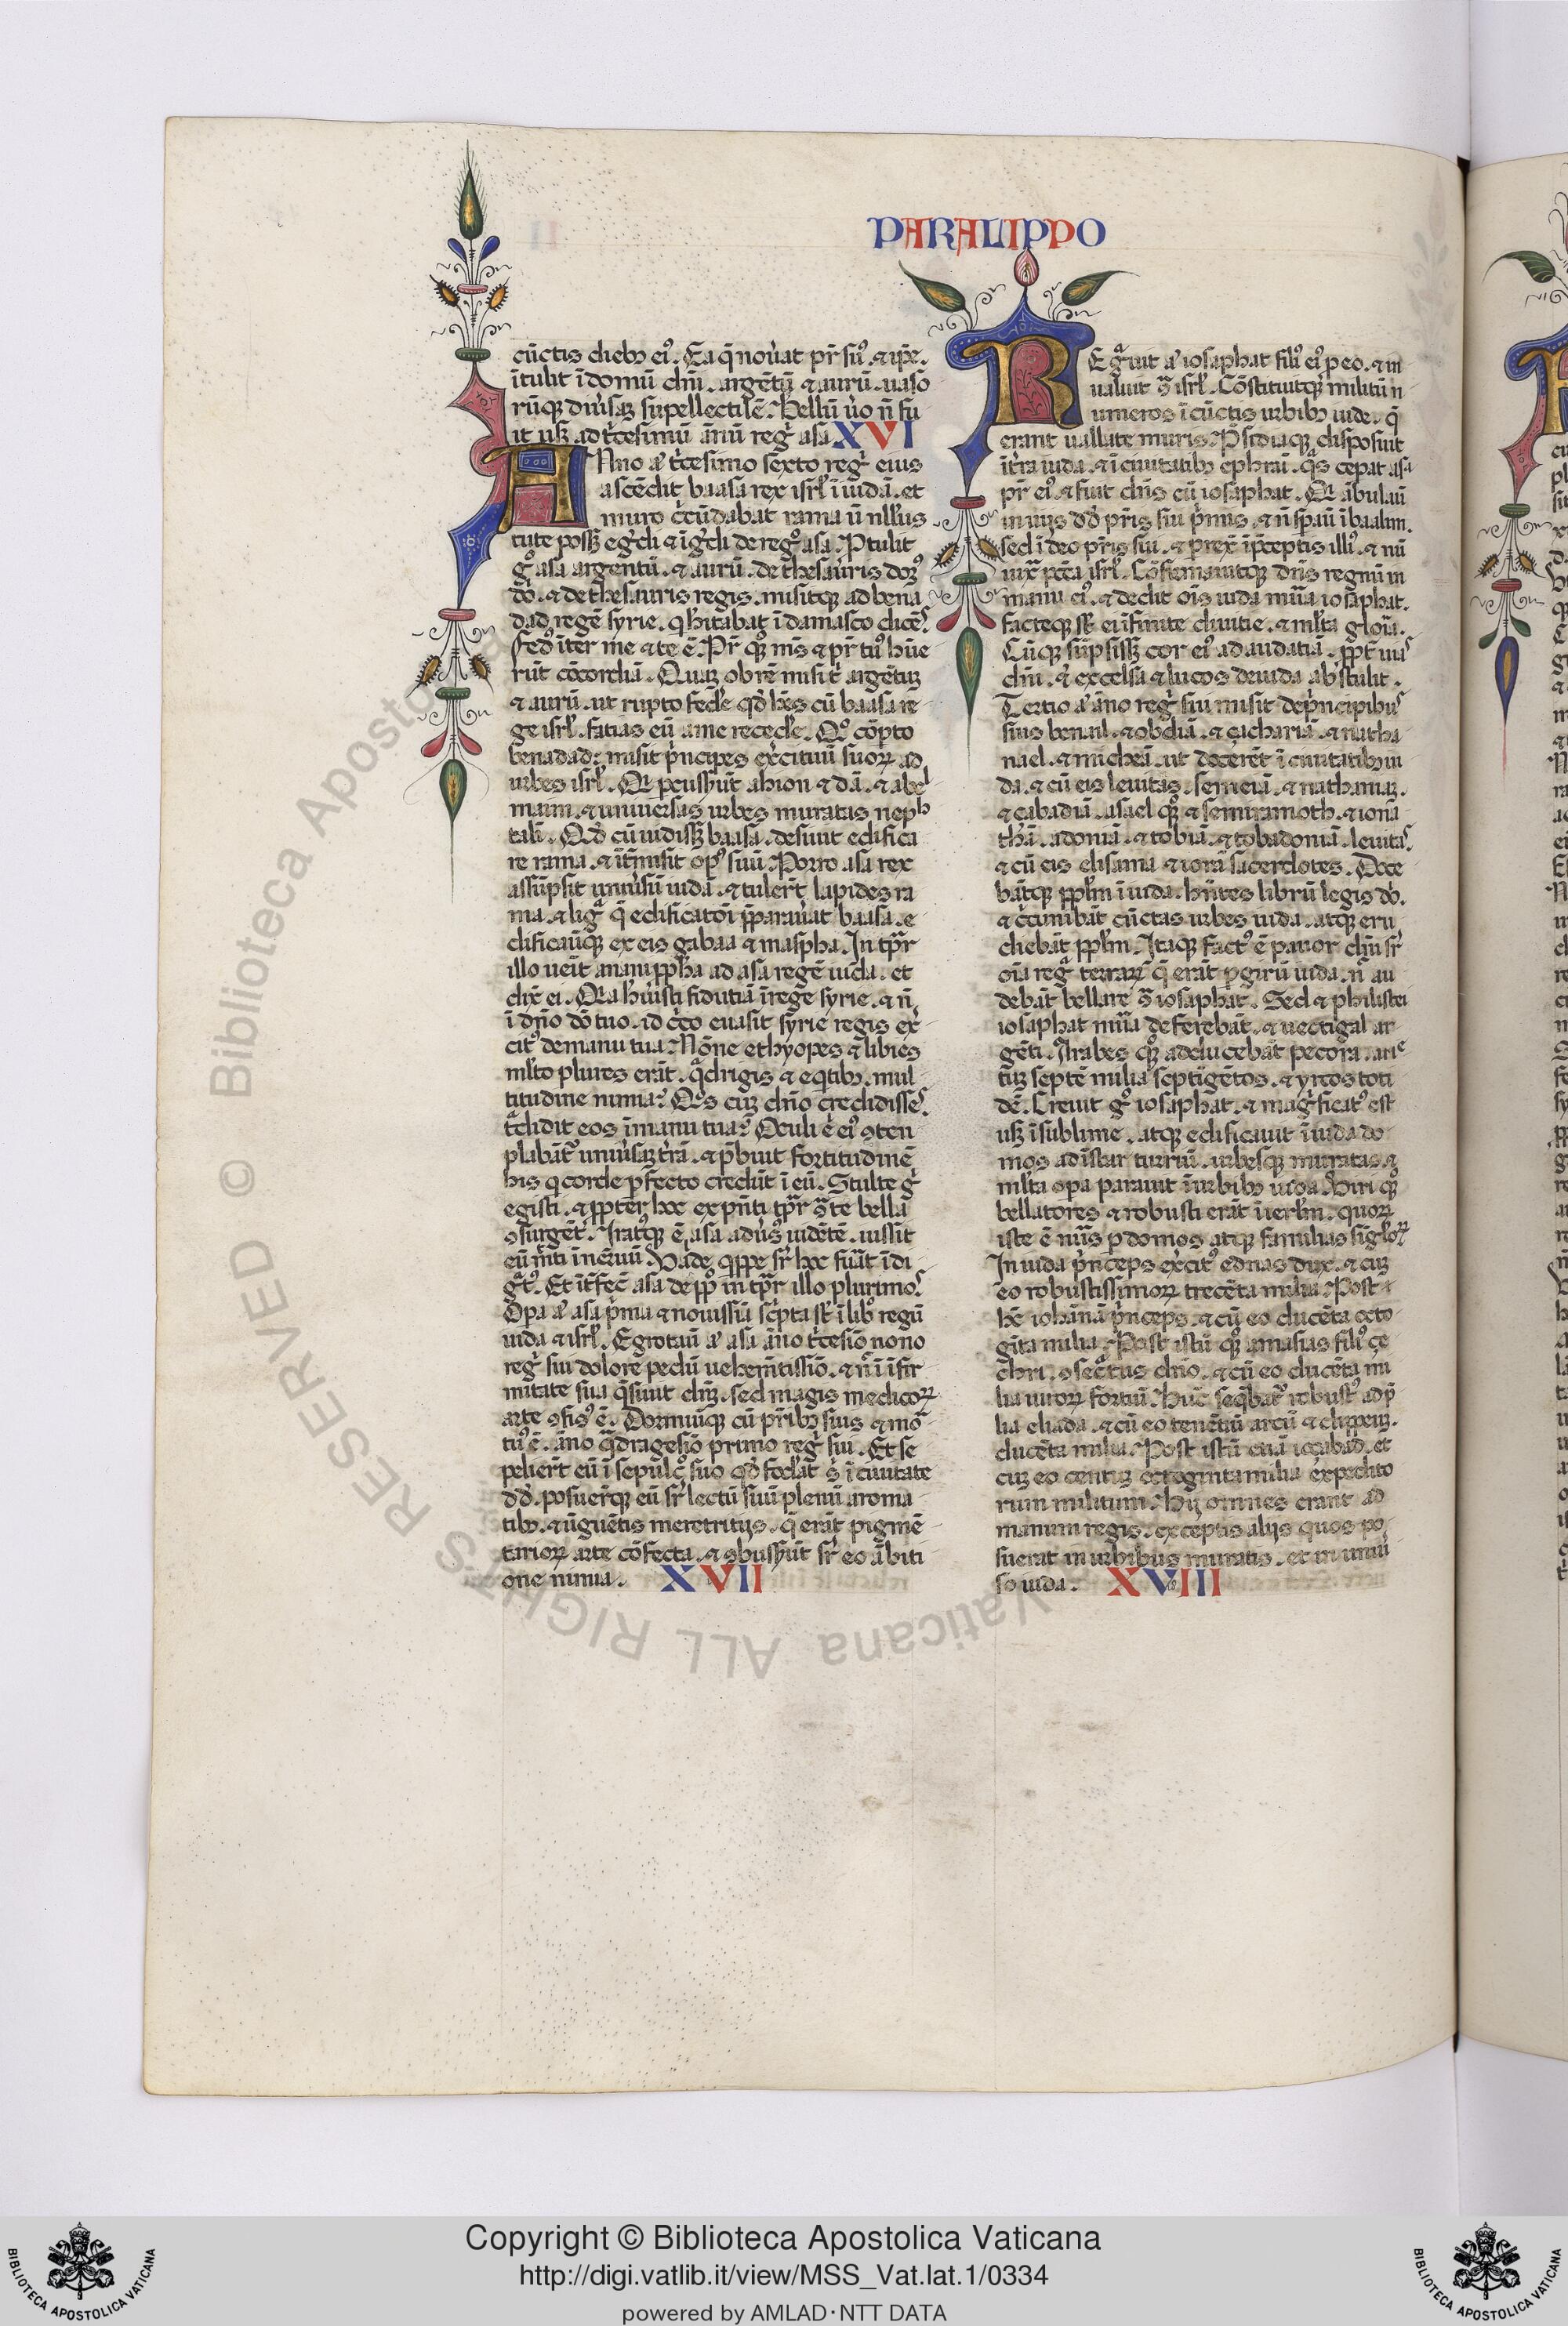 PARALIPPO
cūctis dieb3 eiꝰ. Ea q̄ nouat pr̄ suꝰ. ⁊ ip̄e.
ītulit ī domū dn̄i. argētū ⁊ aurū. uaso
rūqꝫ diuīsaꝫ supellectilē. Bellū uͦo n̄ fu
it usꝫ ad tͥcesimū ānū regͥ asa XVI
ANno aͭ tͥcesimo sexto regͥ eius
ascēdit baasa rex isrl̄ ī iudā. et
muro cͥcūdabat rama ū nllus
tute possꝫ egͥdi ⁊ īgͥdi de regͦ asa. Ptulit
gͦ asa argentū. ⁊ aurū. de thesauris domꝰ
dō. ⁊ de thesauris regis. misitqꝫ ad bena
dad regē syrie. q hītabat ī damasco dicēs
fedꝰ īter me ⁊ te ē. Pr̄ qꝫ mꝰ ⁊ pr̄ tuꝰ hūe
rūt cōcordiā. Quaꝫ obrē misi tͥ argētuꝫ
⁊ aurū. ut rupto fedͤe qd̄ hēs cū baasa re
ge isrl̄. facias eū a me recedͤe. Qͦ cōpto
benadad: misit pͥncipes exͥcituū suoꝝ ad
urbes isrl̄. Qͥ peussͤūt ahion ⁊ dā. ⁊ abel
maim. ⁊ uniuersas urbes muratas neph
tali. Qd̄ cū uidissꝫ baasa. desiuit edifica
re rama. ⁊ īt̄misit opꝰ suū. Porro asa rex
assūpsit uniūsū iudā. ⁊ tulert̄ lapides ra
ma. ⁊ ligͣ q̄ edificatōi p̄parauat baasa. e
dificauitqꝫ ex eis gabaa ⁊ maspha. In tp̄r
illo ueit anani pp̄ha ad asa regē iuda. et
dix̄ ei. Qͥa hūisti fidutiā ī rege syrie. ⁊ n̄
ī dn̄o dō tuo. id cͥco euasit syrie regis exͥ
citꝰ de manu tua. Nōne ethyopes ⁊ libies
ml̄to plures erāt. qͣdrigis ⁊ eqͥtib3. mul
titudine nimia? Qͦs cuꝫ dn̄o credidisses
tͣdidit eos ī manu tua? Oculi ē eiꝰ ꝯten
plabāt̄ uniūsaꝫ tͥrā. ⁊ p̄buit fortitudinē
his q corde pfecto credūt ī eū. Stulte gͦ
egisti. ⁊ ꝓpter hoc ex pn̄ti tp̄r ꝯͣ te bella
ꝯsurgēt. Iratꝰqꝫ ē asa adūsꝰ uidētē. iussit
eū mͥti ī neruū. Valde qͥppe sr̄ hoc fuat̄ īdi
gͣtꝰ. Et īt̄fec̄ asa de pp̄o in tp̄r illo plurimos
Opa aͭ asa pͥma ⁊ nouissīa scͥpta sūt ī libͦ regū
iuda ⁊ isrl̄. Egrotauit̄ aͭ asa āno tͥcesīo nono
regͥ sui dolore pedū uehem̄tissīo. ⁊ nͨ ī īfir
mitate sua qͣsiuit dn̄ꝫ. sed magis medicoꝝ
arte ꝯfisꝰ ē. Dormiuitqꝫ cū prīb3 suis ⁊ mō
tuꝰ ē. āno qͣdragesīo primo regͥ sui. Et se
pelierͭ eū ī sepulcͦ suo qd̄ fodͤat sͥ ī ciuitate
dd̄. posuertqꝫ eū sr̄ lectū suū plenū aroma
tib3. ⁊ ūguētis meretritijs. q̄ erāt pigmē
tarioꝝ arte cōfecta. ⁊ ꝯbussͤūt sr̄ eo ābiti
one nimia. XVII
REgͣuit aͭ iosaphat filiꝰ eiꝰ p eo. ⁊ in
ualuit ꝯͣ isrl̄. Cōstituitqꝫ militū n
umeros ī cūctis urbib3 iude. q̄
erant uallate muris. P̄sidiaqꝫ disposuit
ī tͥra iuda. ⁊ ī ciuitatib3 ephrai. qͣs cepat asa
pr̄ eiꝰ. ⁊ fuit dn̄s cū iosaphat. Qͥ ābulauit
in uijs dd̄ pr̄is sui pͥmis. ⁊ n̄ sp̄auit ī baalim.
sed ī deo pr̄is sui. ⁊ prex̄ ī p̄ceptis illiꝰ. ⁊ nō
iuxͣ pctā isrl̄. Cōfirmauitqꝫ dn̄s regnū in
manu eiꝰ. ⁊ dedit oīs iuda mūa iosaphat.
facteqꝫ sūt ei īfinite diuitie. ⁊ ml̄ta gloria.
Cūqꝫ sūpsissꝫ cor eiꝰ ad audatiā. ꝓpt̄ uias
dn̄i. ⁊ excelsa ⁊ lucos de iuda abstulit.
Tertio aͭ āno regͥ sui misit de pͥncipibus
suis benail. ⁊ obdiā. ⁊ zachariā. ⁊ natha
nael. ⁊ micheā. ut docerēt ī ciuitatib3 iu
da. ⁊ cū eis leuitas. semeiā. ⁊ nathaniaꝫ.
⁊ zabadiā. asael qꝫ ⁊ semiramoth. ⁊ iona
thā. adoniā. ⁊ tobiā. ⁊ tobadoniā. leuitas
⁊ cū eis elisama ⁊ iorā sacerdotes. Doce
bātqꝫ pplm̄ ī iuda. hn̄tes librū legis dō.
⁊ cͥcuibāt cūctas urbes iuda. atqꝫ eru
diebāt pplm̄. Itaqꝫ factꝰ ē pauor dn̄i sr̄
oīa regͣ terraꝝ q̄ erāt p girū iuda. nͨ au
debāt bellare ꝯͣ iosaphat. Sed ⁊ philistei
iosaphat mūa deferebāt. ⁊ uectigal ar
gēti. Arabes qꝫ adducebāt pecora. arie
tuꝫ septē milia septīgētos. ⁊ yrcos toti
dē. Creuit gͦ iosaphat. ⁊ magͥficatꝰ est
usꝫ ī sublime. atqꝫ edificauit ī iuda do
mos ad īstar turriū. urbesqꝫ muratas. ⁊
ml̄ta opa parauit ī urbib3 iuda. Viri qꝫ
bellatores ⁊ robusti erāt ī ierl̄m. quoꝝ
iste ē nūs p domos atqꝫ familias sigl̄oꝝ
In iuda pͥnceps exͥcitꝰ ednas dux. ⁊ cuꝫ
eo robustissimoꝝ trecēta milia. Post
hc̄ iohānā pͥnceps. ⁊ cū eo ducēta octo
gīta milia. Post istū qꝫ amasias filiꝰ ze
chri. ꝯsecͣtus dn̄o. ⁊ cū eo ducēta mi
lia uiroꝝ fortiū. Hūc seqͣbat̄ robustꝰ ad p̄
lia eliada. ⁊ cū eo tenētiū arcū ⁊ clippeuꝫ.
ducēta milia. Post istū etiā iozabad. et
cuꝫ eo centuꝫ octoginta milia expedito
rum militum. Hij omnes erant ad
manum regis. exceptis alijs quos po
suerat in urbibus muratis. et in uniū
so iuda. XVIII
Biblioteca Apostolica Vaticana ALL RIGHTS RESERVED ©
Copyright © Biblioteca Apostolica Vaticana
http://digi.vatlib.it/view/MSS_Vat.lat.1/0334
powered by AMLAD·NTT DATA
BIBLIOTECA APOSTOLICA VATICANA
BIBLIOTECA APOSTOLICA VATICANA